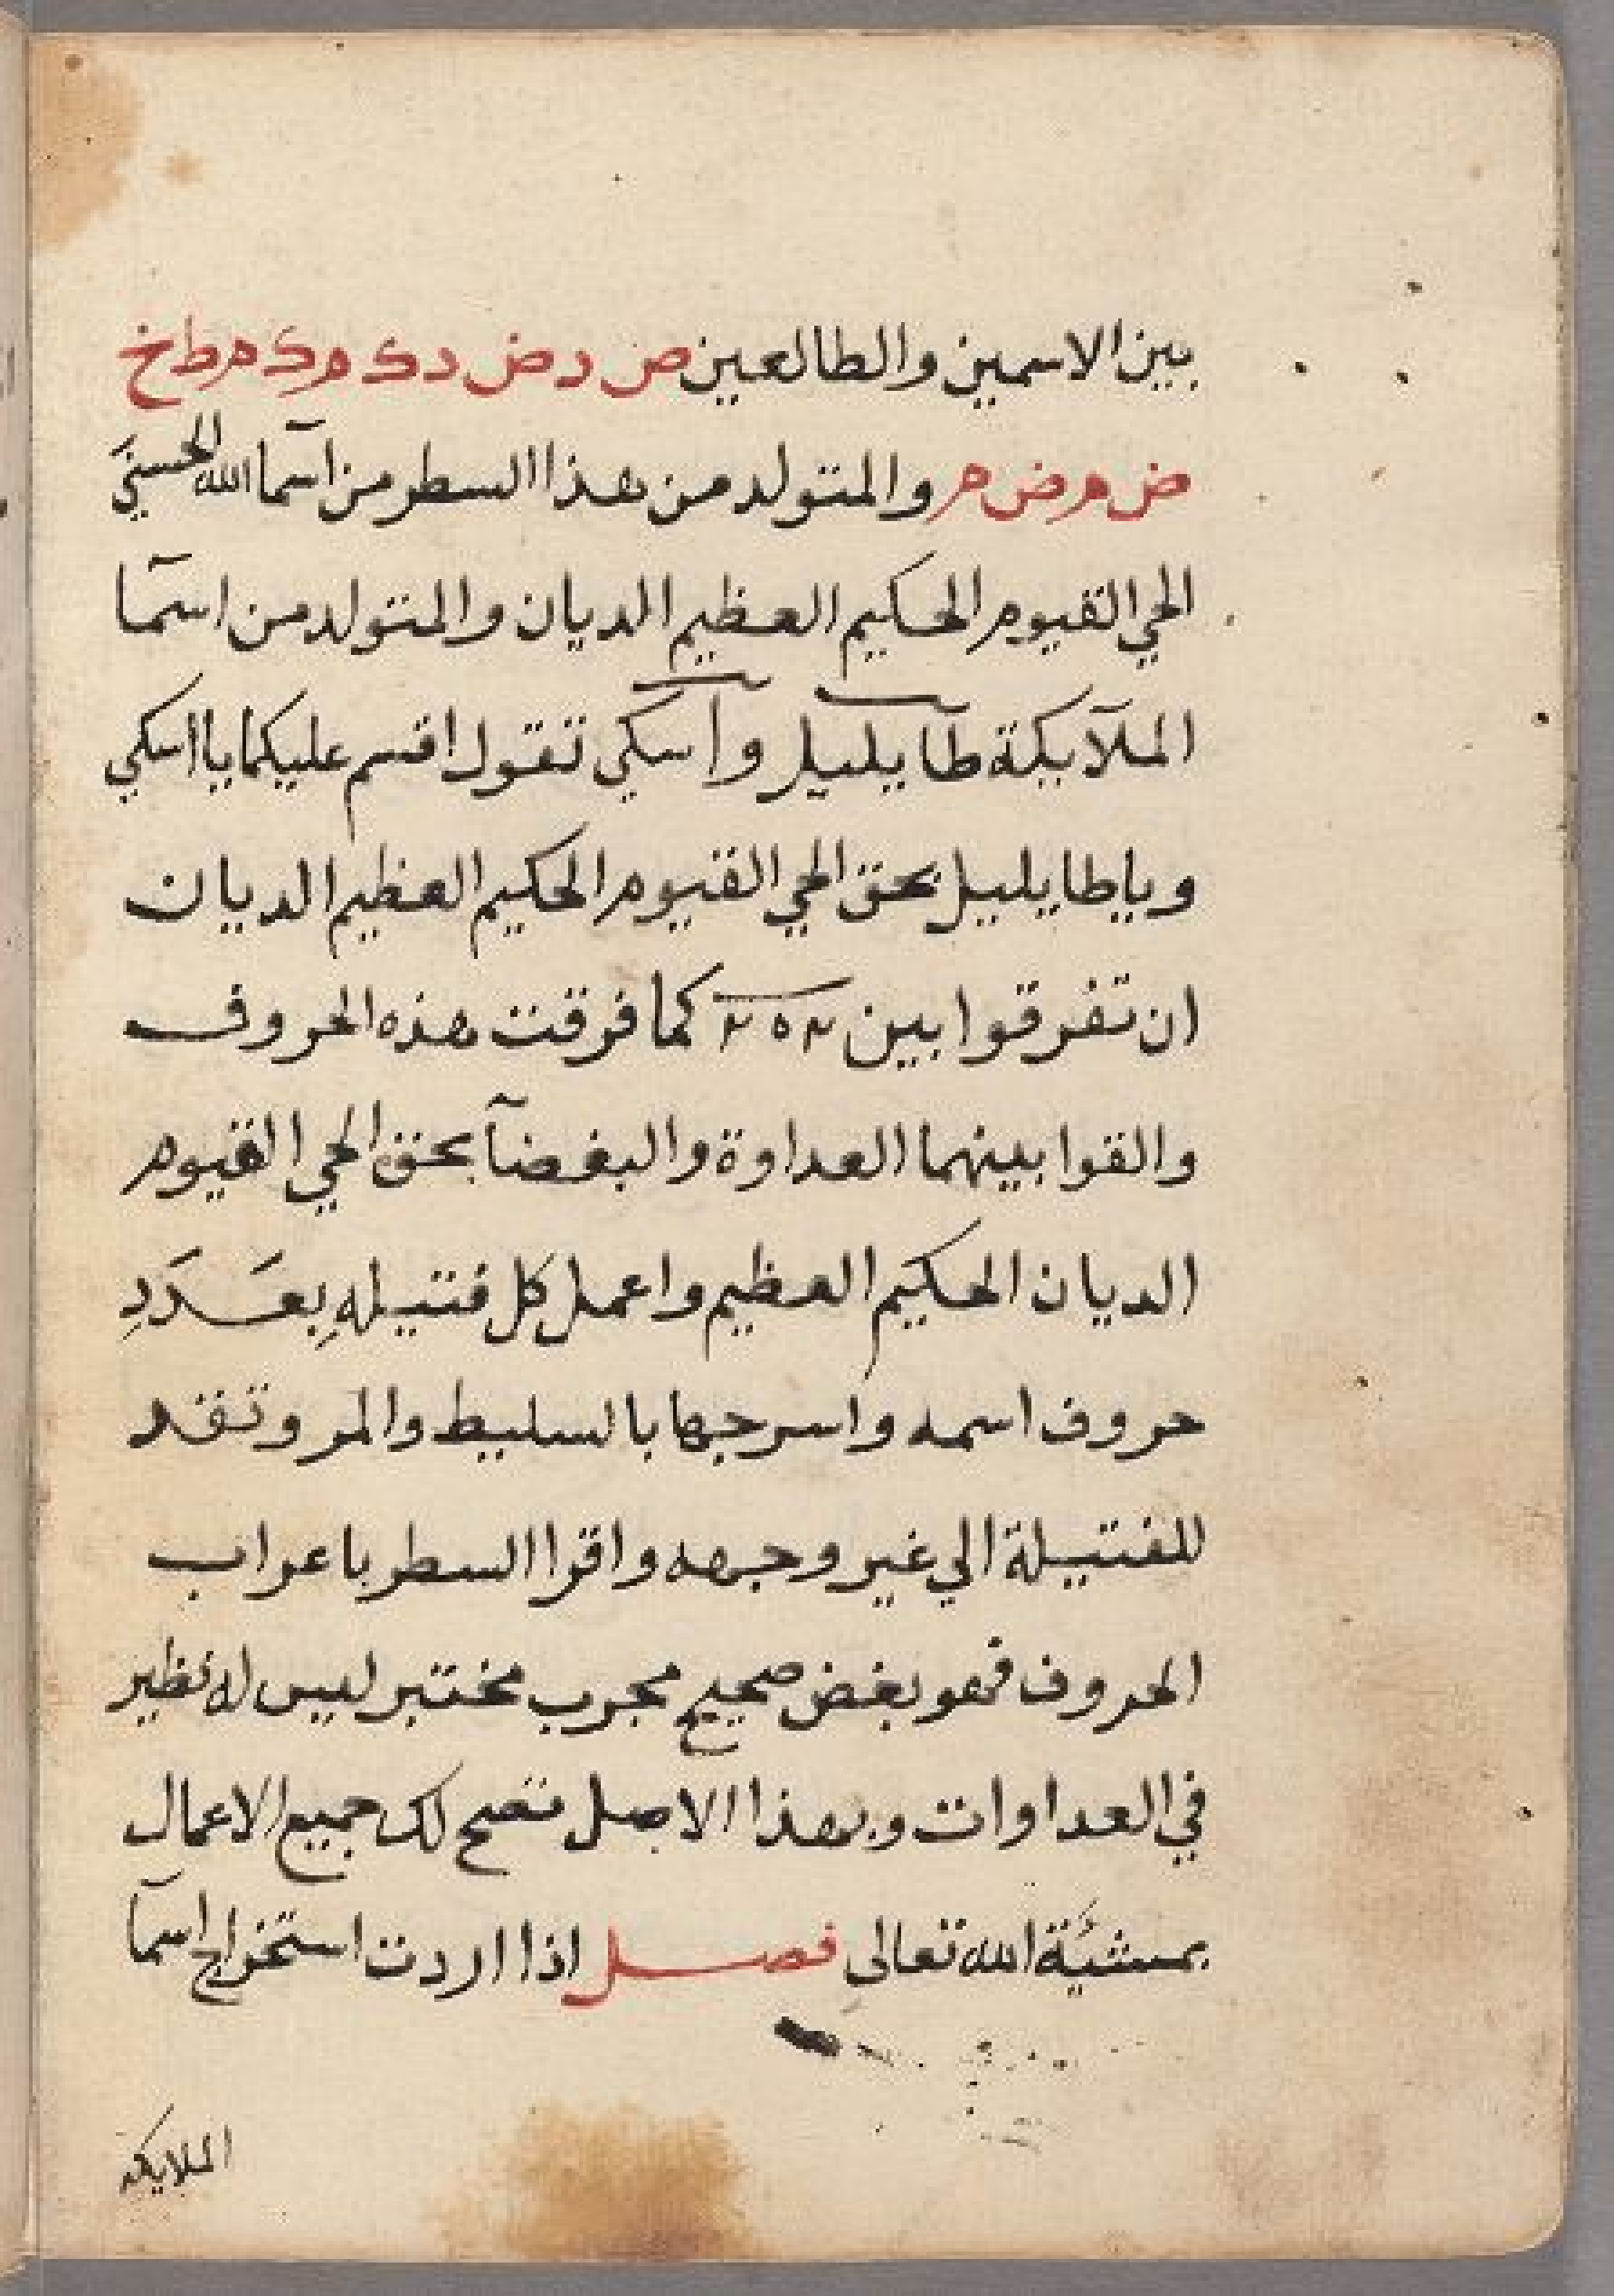 بين الاسمين والطالعين ض د ض د ك م ك م ط خ
ض م ض م والمتولد من هذا السطر من اسمآ الله الحسني
الحي القيوم الحكيم العظيم الديان والمتولد من اسمآ
الملآيكة طآيليل وآسكي تقول اقسم عليكما يا اسكي
ويا طايليل بحق الحي القيوم الحكيم العظيم الديان
ان تفرقوا بين كما فرقت هذه الحروف
والقوا بينهما العداوة والبغضآ بحق الحي القيوم
الديان الحكيم العظيم واعمل كل فتيله بِعَدَدِ
حروف اسمه واسرجها بالسليط والمر وتقد
للفتيلة الي غير وجهه واقرا السطر باعراب
الحروف فهو بغض صحيح مجرب مختبر ليس له نظير
في العداوات وبهذا الاصل تصح لك جميع الاعمال
بمشئية الله تعالي فصل اذا اردت استخراج اسمآ
الملايكه